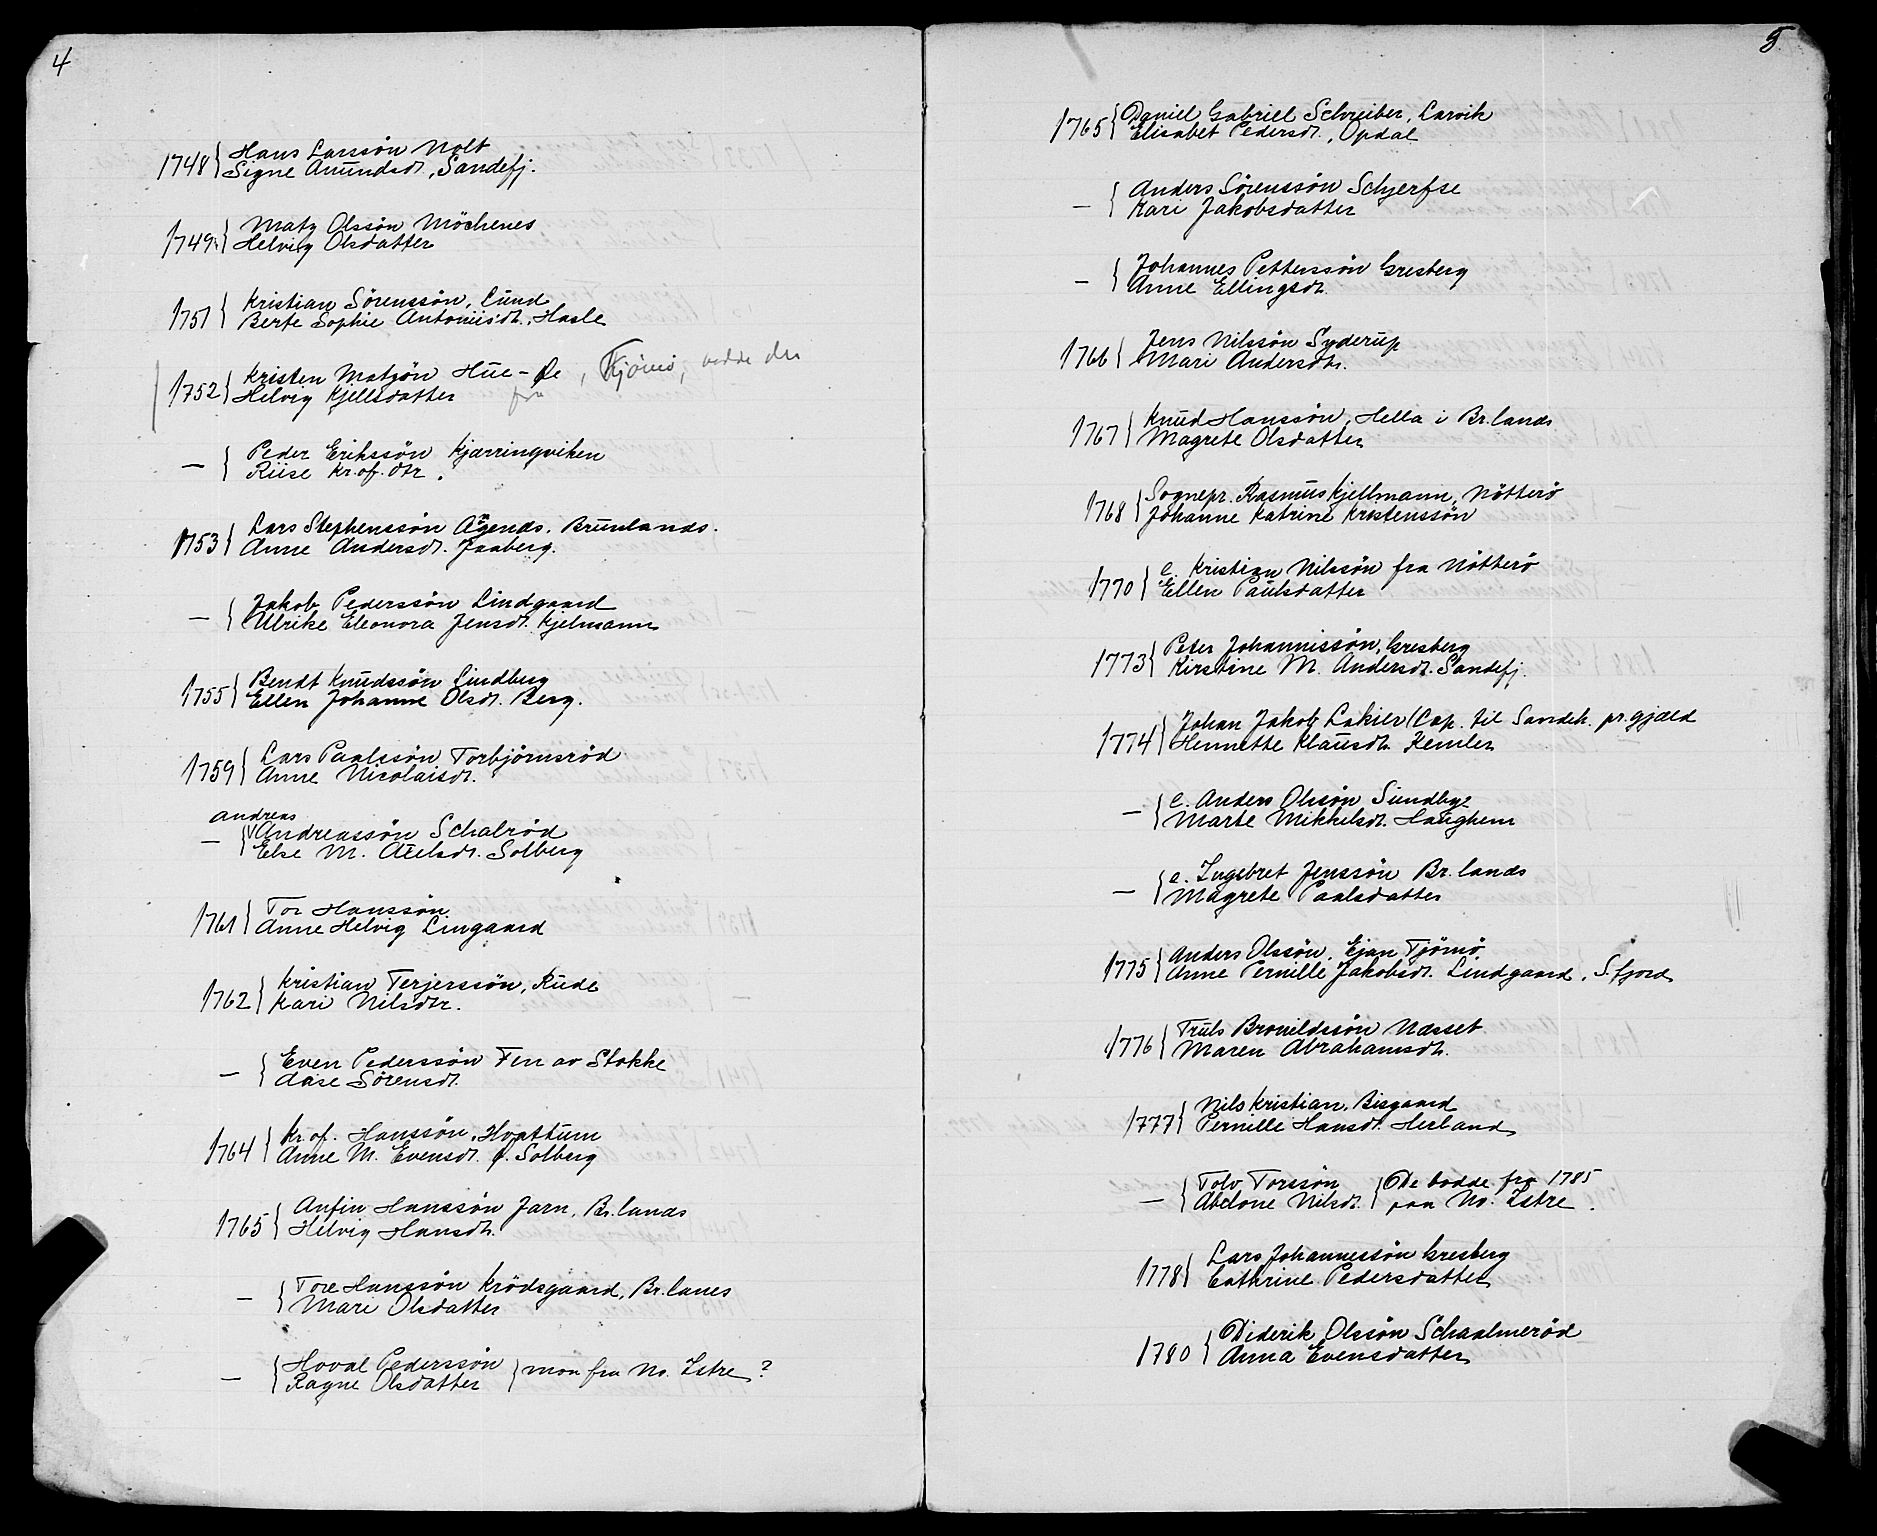 4
1748 { Hans Larssön Nolt
Signe Amundsdt., Sandefj.
1749 { Matz Olssön Möchenes
Helvig Olsdatter
1751 { Kristian Sörenssön, Lund
Berte Sophie Antoniisdt., Hasle
1752 { Kristen Matzön Hue-Øe, Tjömö,
Helvig Kjellsdatter fra
— { Peder Erikssön Kjærringviken
Riise Kr.of.dtr.
1753 { Lars Stephenssön Agends. Brunlands.
Anne Andersdt. Jaaberg.
— { Jakob Pederssön Lindgaard
Ulrike Eleonora Jensdt. Kjelmann
1755 { Bendt Knudssön Lindberg
Ellen Johanne Olsdt. Berg.
1759 { Lars Paalssön Torbjörnsröd
Anne Nicolaisdt.
andreas
— { V Andreassön Schalröd
Else M. Axelsdt. Solberg
1761 { Tor Hanssön
Anne Helvig Lingaard
1762 { Kristian Terjerssön, Rude
Kari Nilsdtr.
— { Even Pederssön Fen av Stokke
Aase Sörensdt.
1764 { Kr.of. Hanssön, Hvattum
Anne M. Evensdt. Ø. Solberg
1765 { Anfin Hanssön Jarn, Br.lands
Helvig Hansdt.
— { Tore Hanssön Krödsgaard, Br.lanes
Mari Olsdatter
— { Hoval Pederssön } mon fra No. Istre?
Ragne Olsdatter
5
1765 { Daniel Gabriel Schreiber, Larvik
Elisabet Pedersdt., Opdal
— { Anders Sörenssön Schjerfse
Kari Jakobsdatter
— { Johannes Petterssön Gresberg
Anne Ellingsdt.
1766 { Jens Nilssön Syderup
Mari Andersdt.
1767 { Knud Hanssön, Hella i Br.lands
Magrete Olsdatter
1768 { Sognepr. Rasmus Kjellmann, Nötterö
Johanne Katrine Kristenssön
1770 { e. Kristian Nilssön fra Nötterö
Ellen Paulsdatter
1773 { Peter Johannissön, Gresberg
Kirstine M. Andersdt. Sandefj.
1774 { Johan Jakob Lakier (Cap. til Sandeh. pr.gjæld
Hennette Klausdt. Kemler
— { e. Anders Olssön Sundbye
Marte Mikkelsdt. Haughem
— { e. Ingebret Jenssön Br.lands
Magrete Paalsdatter
1775 { Anders Olssön, Ejan Tjömö
Anne Pernille Jakobsdt. Lindgaard, S.fjord
1776 { Truls Bronildssön Næsset
Maren Abrahamsdt.
1777 { Nils Kristian, Bisgaard
Pernille Hansdt. Herland
— { Tolv Torssön } De bodde fra 1785
Abelone Nilsdt. paa No. Istre.
1778 { Lars Johannessön Gresberg
Cathrine Pedersdatter
1780 { Diderik Olssön Schaalmeröd
Anna Evensdatter